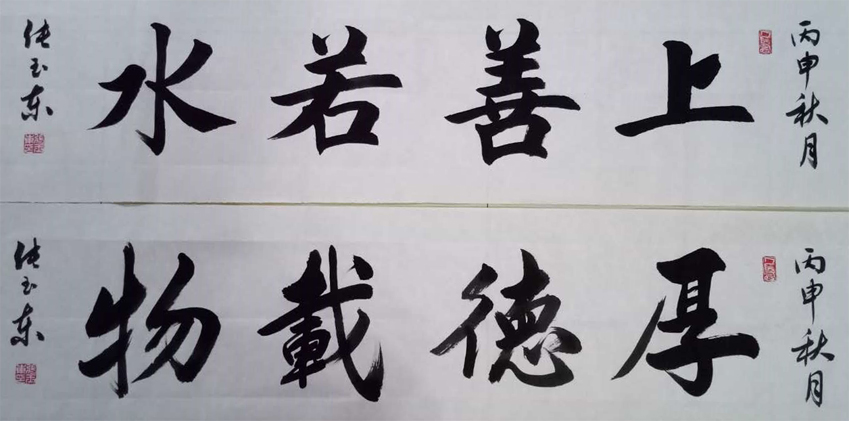 丙申秋月
上善若水
张玉东
丙申秋月
厚德載物
张玉东